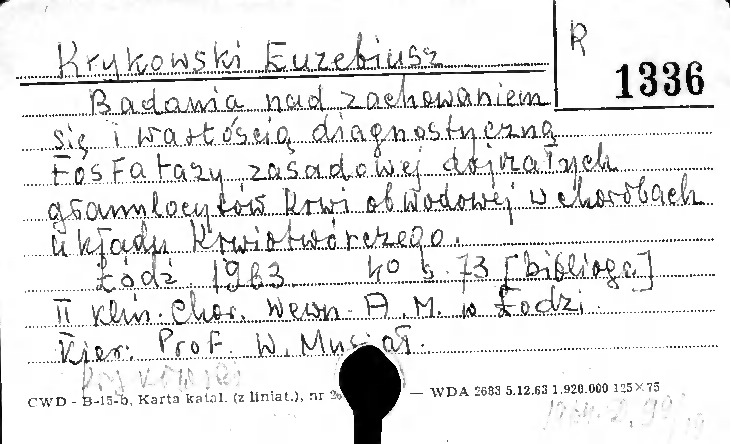 Krykowski Euzebiusz
R
1336
Badania nad zachowaniem
się i wartością diagnostyczną
fosfatazy zasadowej dojrzałych
granulocytów krwi obwodowej w chorobach
układu krwiotwórczego.
Łódź 1963 40 s. 73 [bibliogr.]
II Klin. Chor. Wewn. A.M. w Łodzi.
Kier: Prof. W. Musiał.
CWD - B-15-b, Karta katal. (z liniat.), nr — WDA 2683 5.12.63 1.920.000 125×75